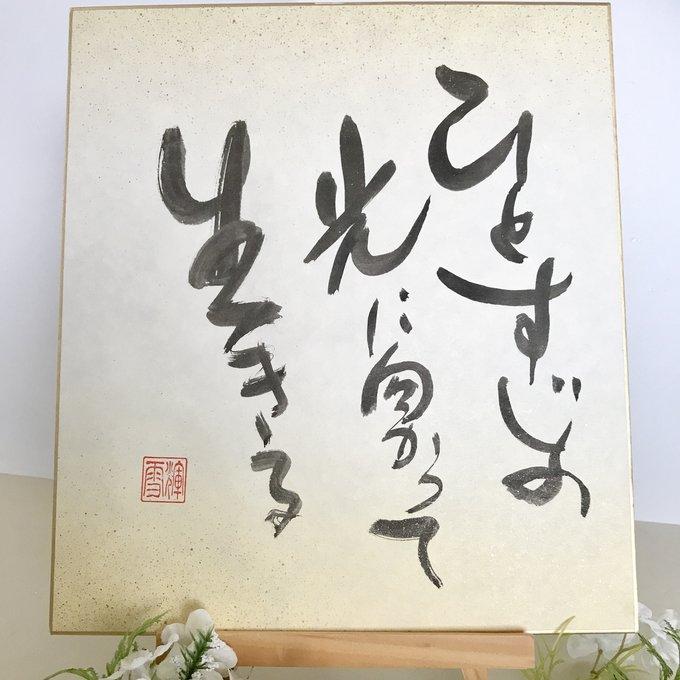 ひとすじの
光に向かって
生きる
輝雪